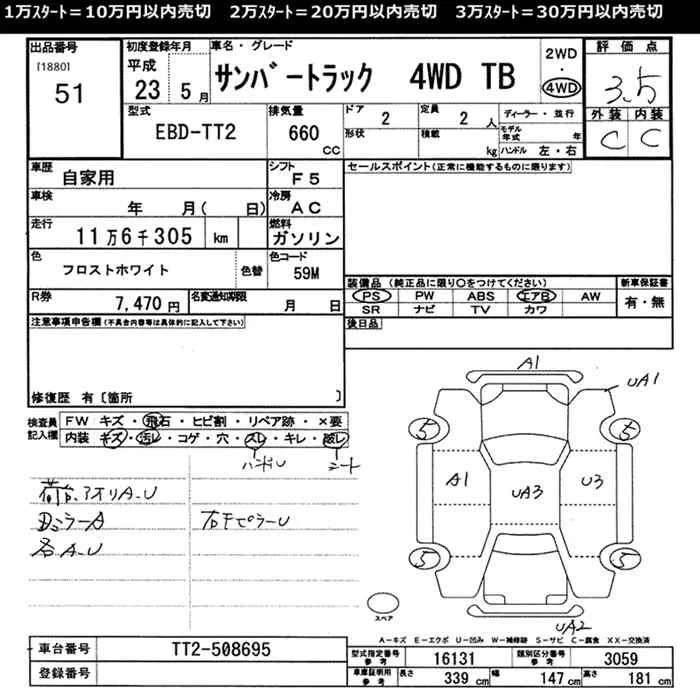 1万ｽﾀｰﾄ＝10万円以内売切　2万ｽﾀｰﾄ＝20万円以内売切　3万ｽﾀｰﾄ＝30万円以内売切
出品番号
[1880]
51
初度登録年月
平成
23 5月
車名・グレード
サンバートラック 4WD TB
2WD
・
4WD
評価点
3.5
外装 内装
C C
型式
EBD-TT2
排気量
660
CC
ドア 2
形状
定員 2 人
積載 kg
ディーラー・並行
モデル年式 年
ハンドル 左・右
車歴
自家用
シフト
F5
セールスポイント(正常に機能するものに限ります)
車検
年 月( 日)
冷房
AC
走行
11万6千305 km
燃料
ガソリン
色
フロストホワイト
色替
色コード
59M
R券
7,470円
名変通知期限
月 日
装備品(純正品に限り○をつけてください)
PS PW ABS エアB AW
SR ナビ TV カワ
新車保証書
有・無
後日品
注意事項申告欄(不具合内容等は具体的に記入して下さい)
修復歴 有〔箇所 〕
検査員記入欄
FW キズ・飛石・ヒビ割・リペア跡・×要
内装 キズ・汚レ・コゲ・穴・スレ・キレ・破レ
ハンドル シート
荷台、アオリA-U
DミラーA
各A-U
右干ピラーU
A1
UA1
5 5
A1 UA3 U3
5 5
UA2
スペア
A－キズ E－エクボ U－凹み W－補修跡 S－サビ C－腐食 XX－交換済
車台番号 TT2-508695
登録番号
型式指定番号 参考 16131
類別区分番号 参考 3059
車庫証明用 参考 長さ 339 cm 幅 147 cm 高さ 181 cm